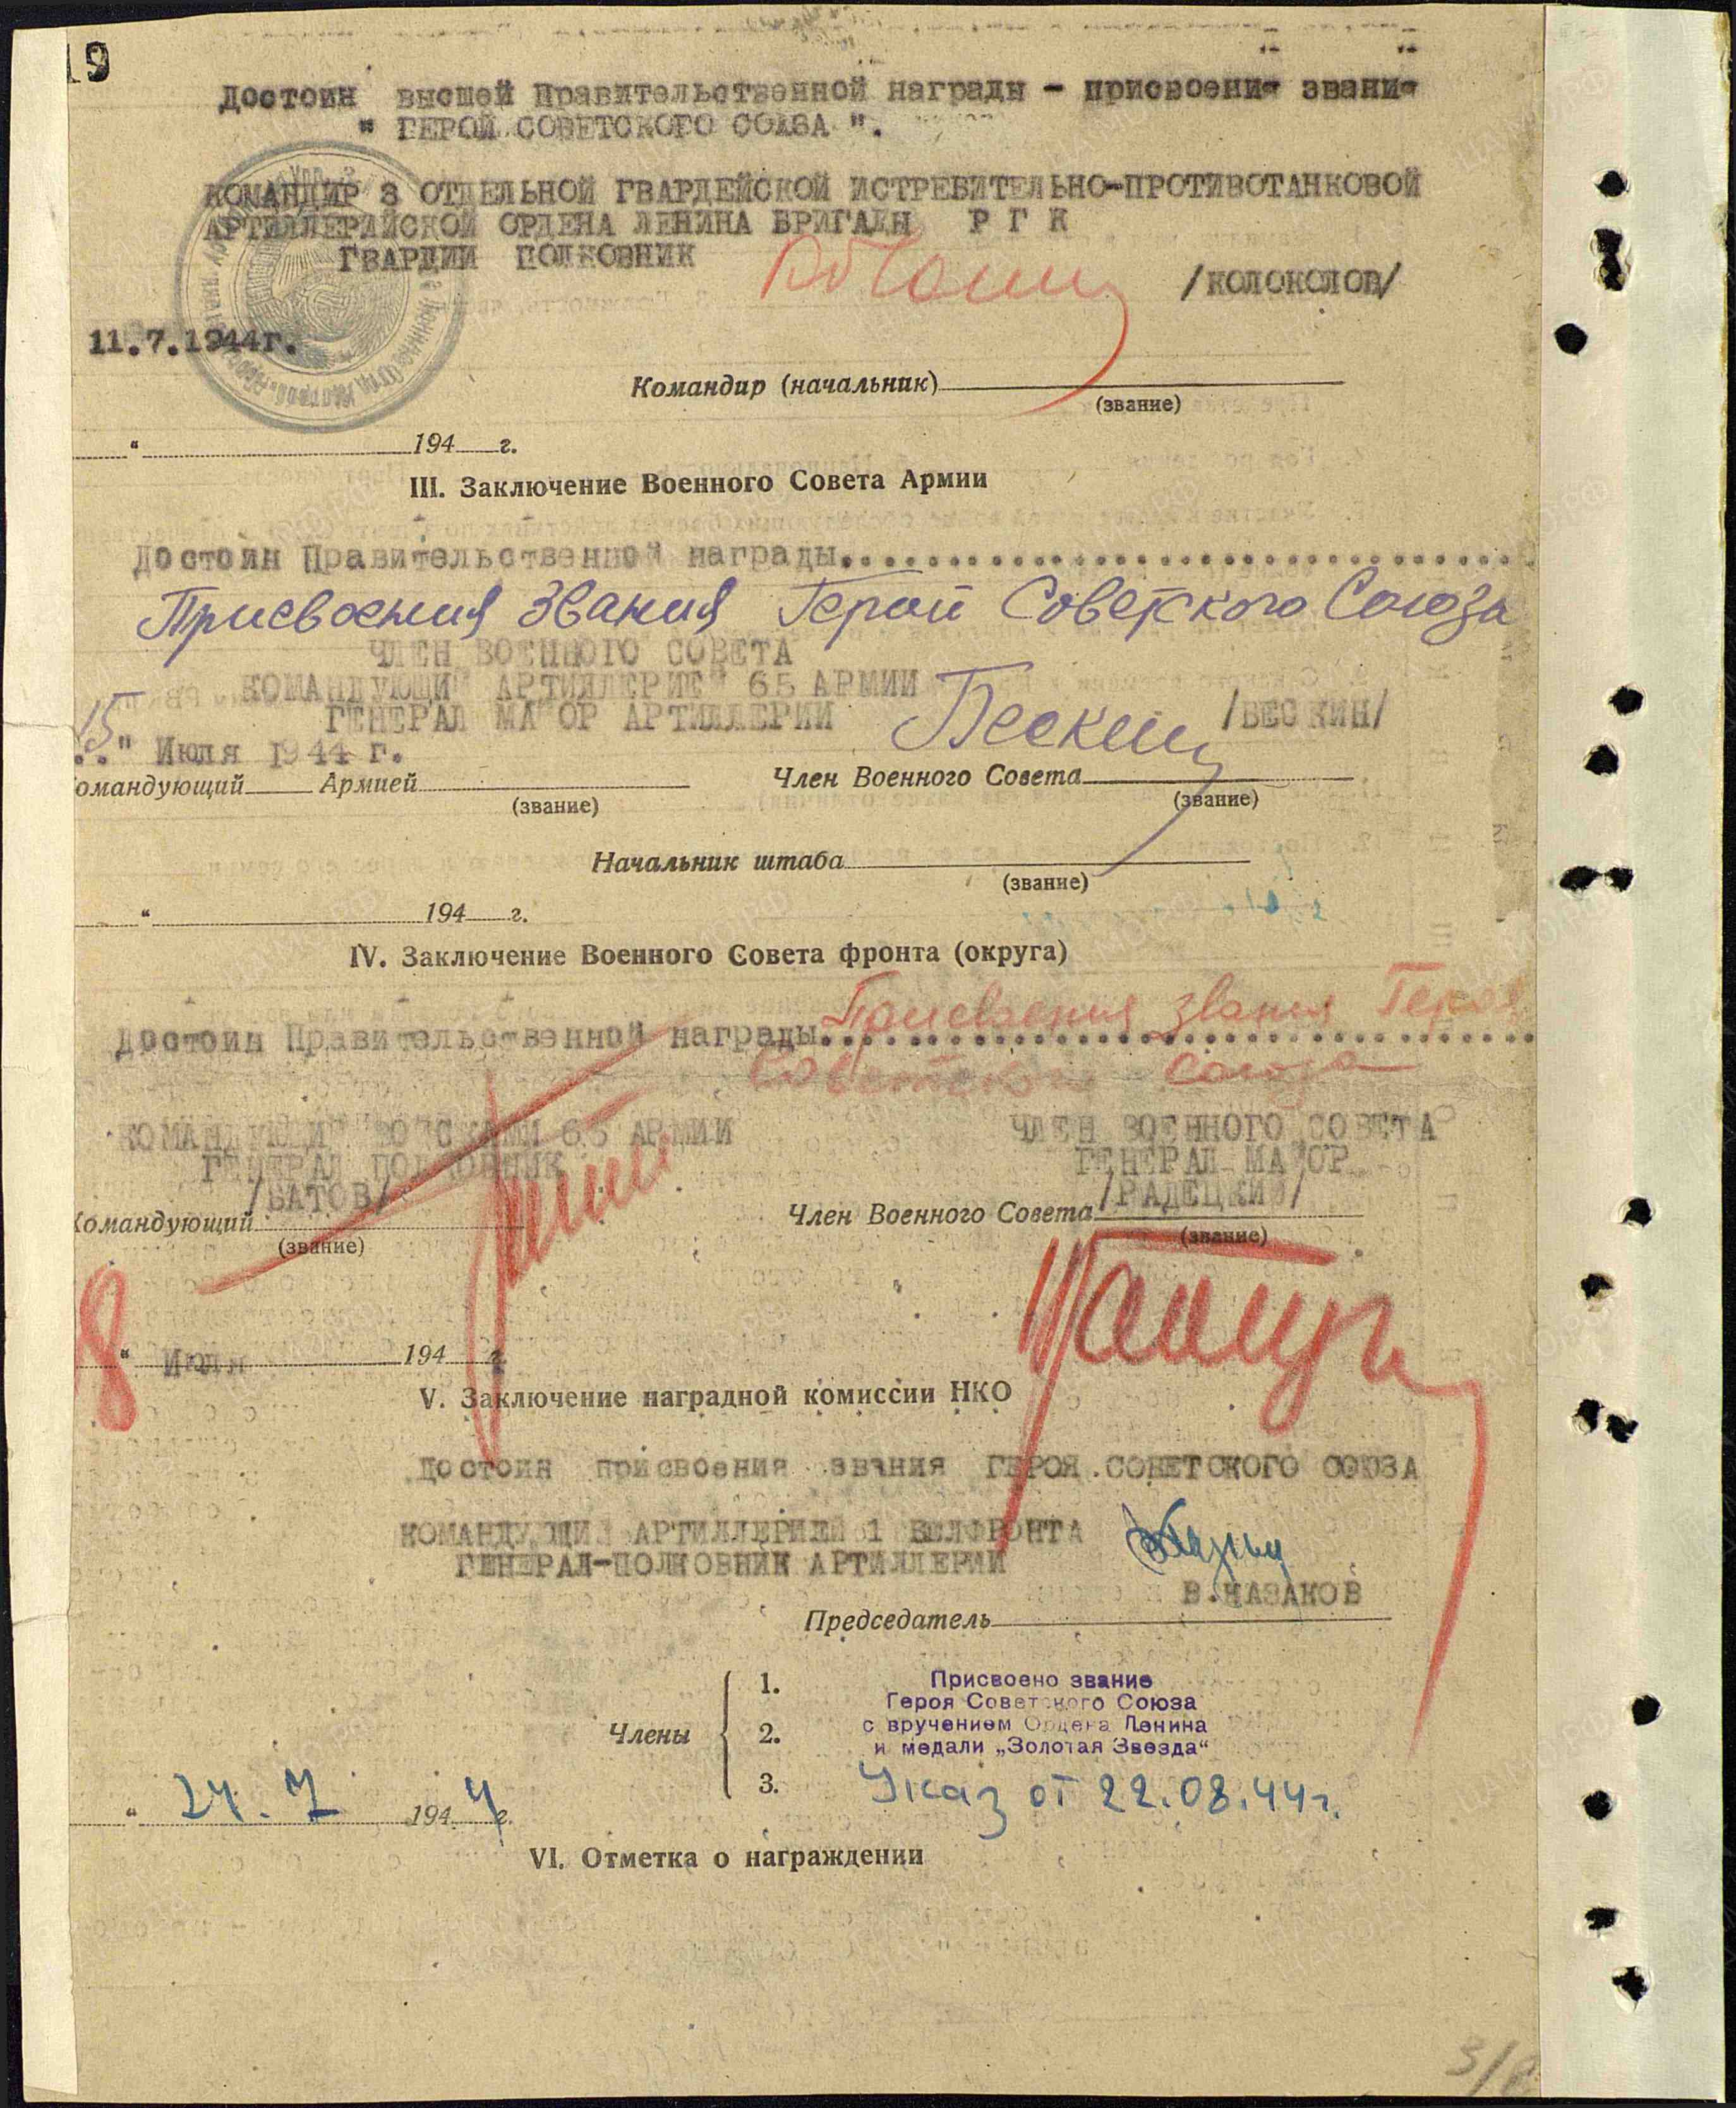 19
Достоин высшей Правительственной награды - присвоения звания
" ГЕРОЙ СОВЕТСКОГО СОЮЗА ".
КОМАНДИР 3 ОТДЕЛЬНОЙ ГВАРДЕЙСКОЙ ИСТРЕБИТЕЛЬНО-ПРОТИВОТАНКОВОЙ
АРТИЛЛЕРИЙСКОЙ ОРДЕНА ЛЕНИНА БРИГАДЫ Р Г К
ГВАРДИИ ПОЛКОВНИК
/КОЛОКОЛОВ/
11.7.1944г.
Командир (начальник)
(звание)
" 194 г.
III. Заключение Военного Совета Армии
Достоин Правительственной награды....................................
Присвоения звания Герой Советского Союза
ЧЛЕН ВОЕННОГО СОВЕТА
КОМАНДУЮЩИЙ АРТИЛЛЕРИЕЙ 65 АРМИИ
ГЕНЕРАЛ МАЙОР АРТИЛЛЕРИИ Бескин /БЕСКИН/
15" Июля 1944 г.
омандующий Армией Член Военного Совета
(звание) (звание)
Начальник штаба
(звание)
" 194 г.
IV. Заключение Военного Совета фронта (округа)
Достоин Правительственной награды Присвоения звания Героя
Советского Союза
КОМАНДУЮЩИЙ ВОЙСКАМИ 65 АРМИИ ЧЛЕН ВОЕННОГО СОВЕТА
ГЕНЕРАЛ ПОЛКОВНИК ГЕНЕРАЛ МАЙОР
/БАТОВ/ /РАДЕЦКИЙ/
Командующий Член Военного Совета
(звание) (звание)
8" Июля 194 г.
V. Заключение наградной комиссии НКО
Достоин присвоения звания ГЕРОЯ СОВЕТСКОГО СОЮЗА
КОМАНДУЮЩИЙ АРТИЛЛЕРИЕЙ 1 БЕЛФРОНТА
ГЕНЕРАЛ-ПОЛКОВНИК АРТИЛЛЕРИИ
В.КАЗАКОВ
Председатель
Члены
1.
2.
3.
Присвоено звание
Героя Советского Союза
с вручением Ордена Ленина
и медали „Золотая Звезда"
Указ от 22.08.44г.
" 24.7 1944 г.
VI. Отметка о награждении